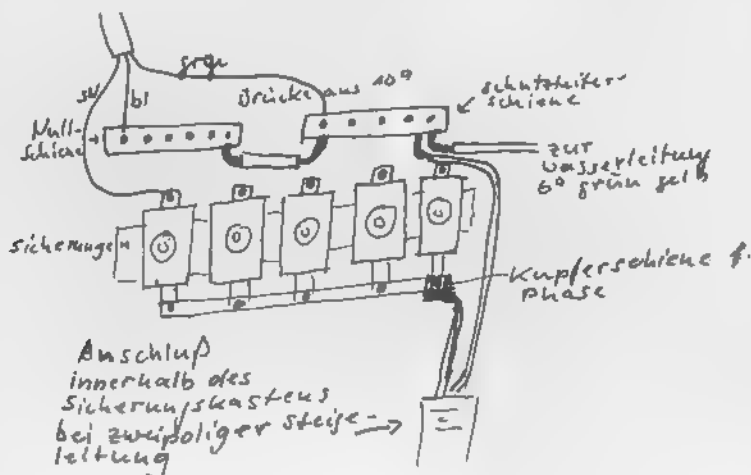 grge
sw
bl
Brücke aus 10□
schutzleiter-
schiene
Null-
schiene
zur
wasserleitung
6□ grün gelb
Sicherungen
Kupferschiene f.
Phase
Anschluß
innerhalb des
Sicherungskastens
bei zweipoliger steige-
leitung